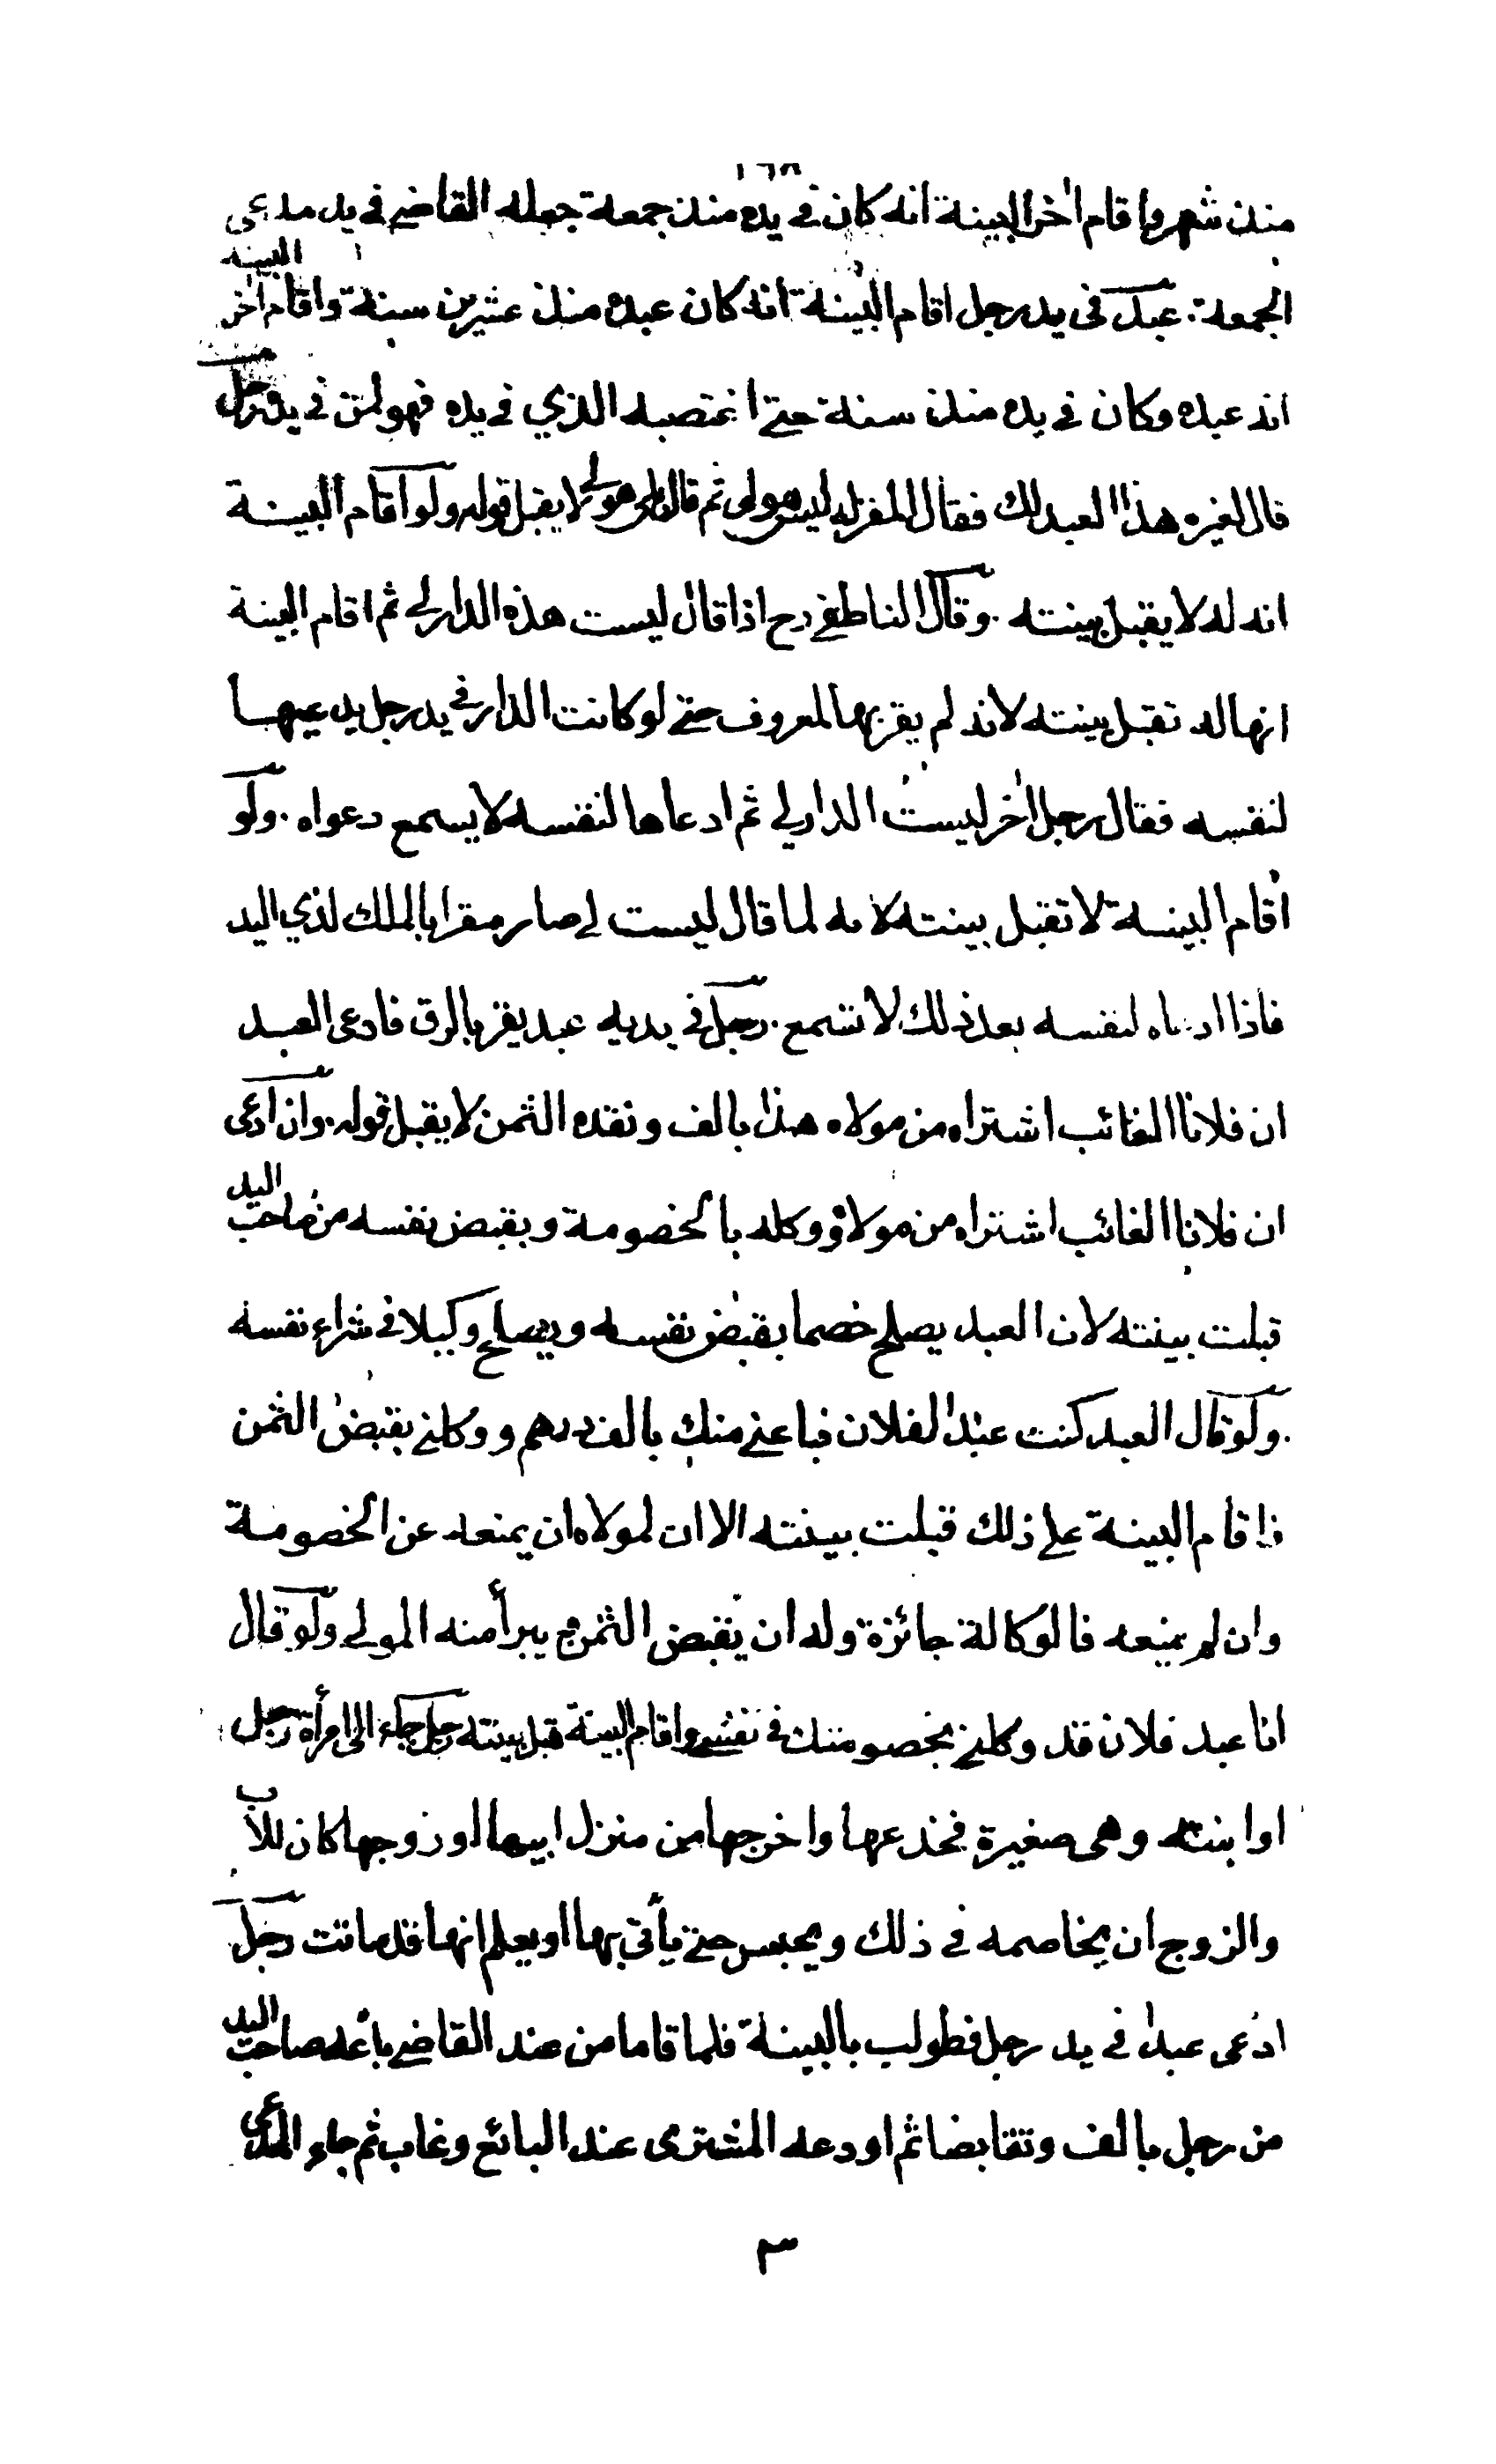 ١٦٨
منذ شهر واقام اخر البينة انه كان في يده منذ جمعة جعله القاضي في يد مدعى
الجمعة. عبد في يد رجل اقام البينة انه كان عبده منذ عشرين سنة واقام اخر البينة
انه عبده وكان في يده منذ سنة حتى اغتصبه الذي في يده فهو لمن في يده رجل
قال لغيره هذا العبد لك فقال المقر له ليس هو لى ثم قال بلى هو لي لا يقبل قوله ولو اقام البينة
انه له لا يقبل بينته. وقال الناطفي رح اذا قال ليست هذه الدار لي ثم اقام البينة
انها له تقبل بينته لانه لم يقر بها لمعروف حتى لو كانت الدار في يد رجل يدعيها
لنفسه فقال رجل اخر ليست الدار لي ثم ادعاها لنفسه لا يسمع دعواه. ولو
اقام البينة لا تقبل بينته لانه لما قال ليست لي صار مقرا بالملك لذي اليد
فاذا ادعاه لنفسه بعد ذلك لا تسمع. رجل في يديه عبد يقر بالرق فادعى العبد
ان فلانا الغائب اشتراه من مولاه هذا بالف ونقده الثمن لا يقبل قوله. وان ادعى
ان فلانا الغائب اشتراه من مولاه ووكله بالخصومة وبقبض نفسه من صاحب اليد
قبلت بينته لان العبد يصلح خصما بقبض نفسه ويصلح وكيلا في شراء نفسه
.ولو قال العبد كنت عبدا لفلان فباعني منك بالف درهم ووكلني بقبض الثمن
فاقام البينة على ذلك قبلت بينته الا ان لمولاه ان يمنعه عن الخصومة
وان لم يمنعه فالوكالة جائزة وله ان يقبض الثمن ويبرأ منه المولى ولو قال
انا عبد فلان قد وكلني بخصومتك في نفسي واقام البينة قبل بينته رجل جاء الى امرأة رجل
او ابنته وهى صغيرة فخدعها واخرجها من منزل ابيها او زوجها كان للاب
والزوج ان يخاصمه في ذلك ويحبس حتى يأتى بها او يعلم انها قد ماتت رجل
ادعى عبدا في يد رجل فطولب بالبينة فلما قاما من عند القاضي باعه صاحب اليد
من رجل بالف وتقابضا ثم اودعه المشترى عند البائع وغاب ثم جاء المدعى